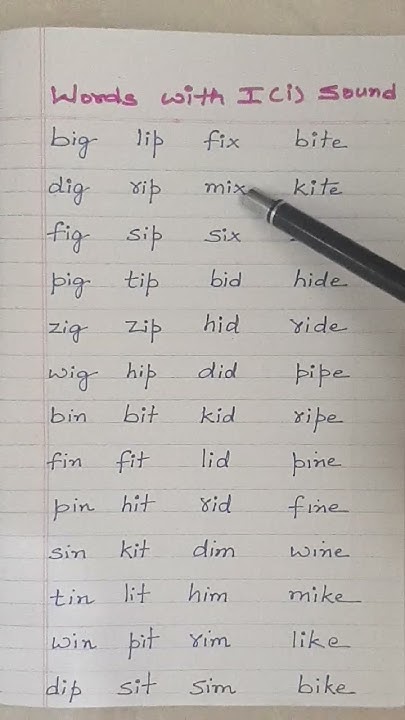 Words with I(i) Sound
big lip fix bite
dig rip mix kite
fig sip six
pig tip bid hide
zig zip hid ride
wig hip did pipe
bin bit kid ripe
fin fit lid pine
pin hit rid fine
sin kit dim wine
tin lit him mike
win pit rim like
dip sit sim bike